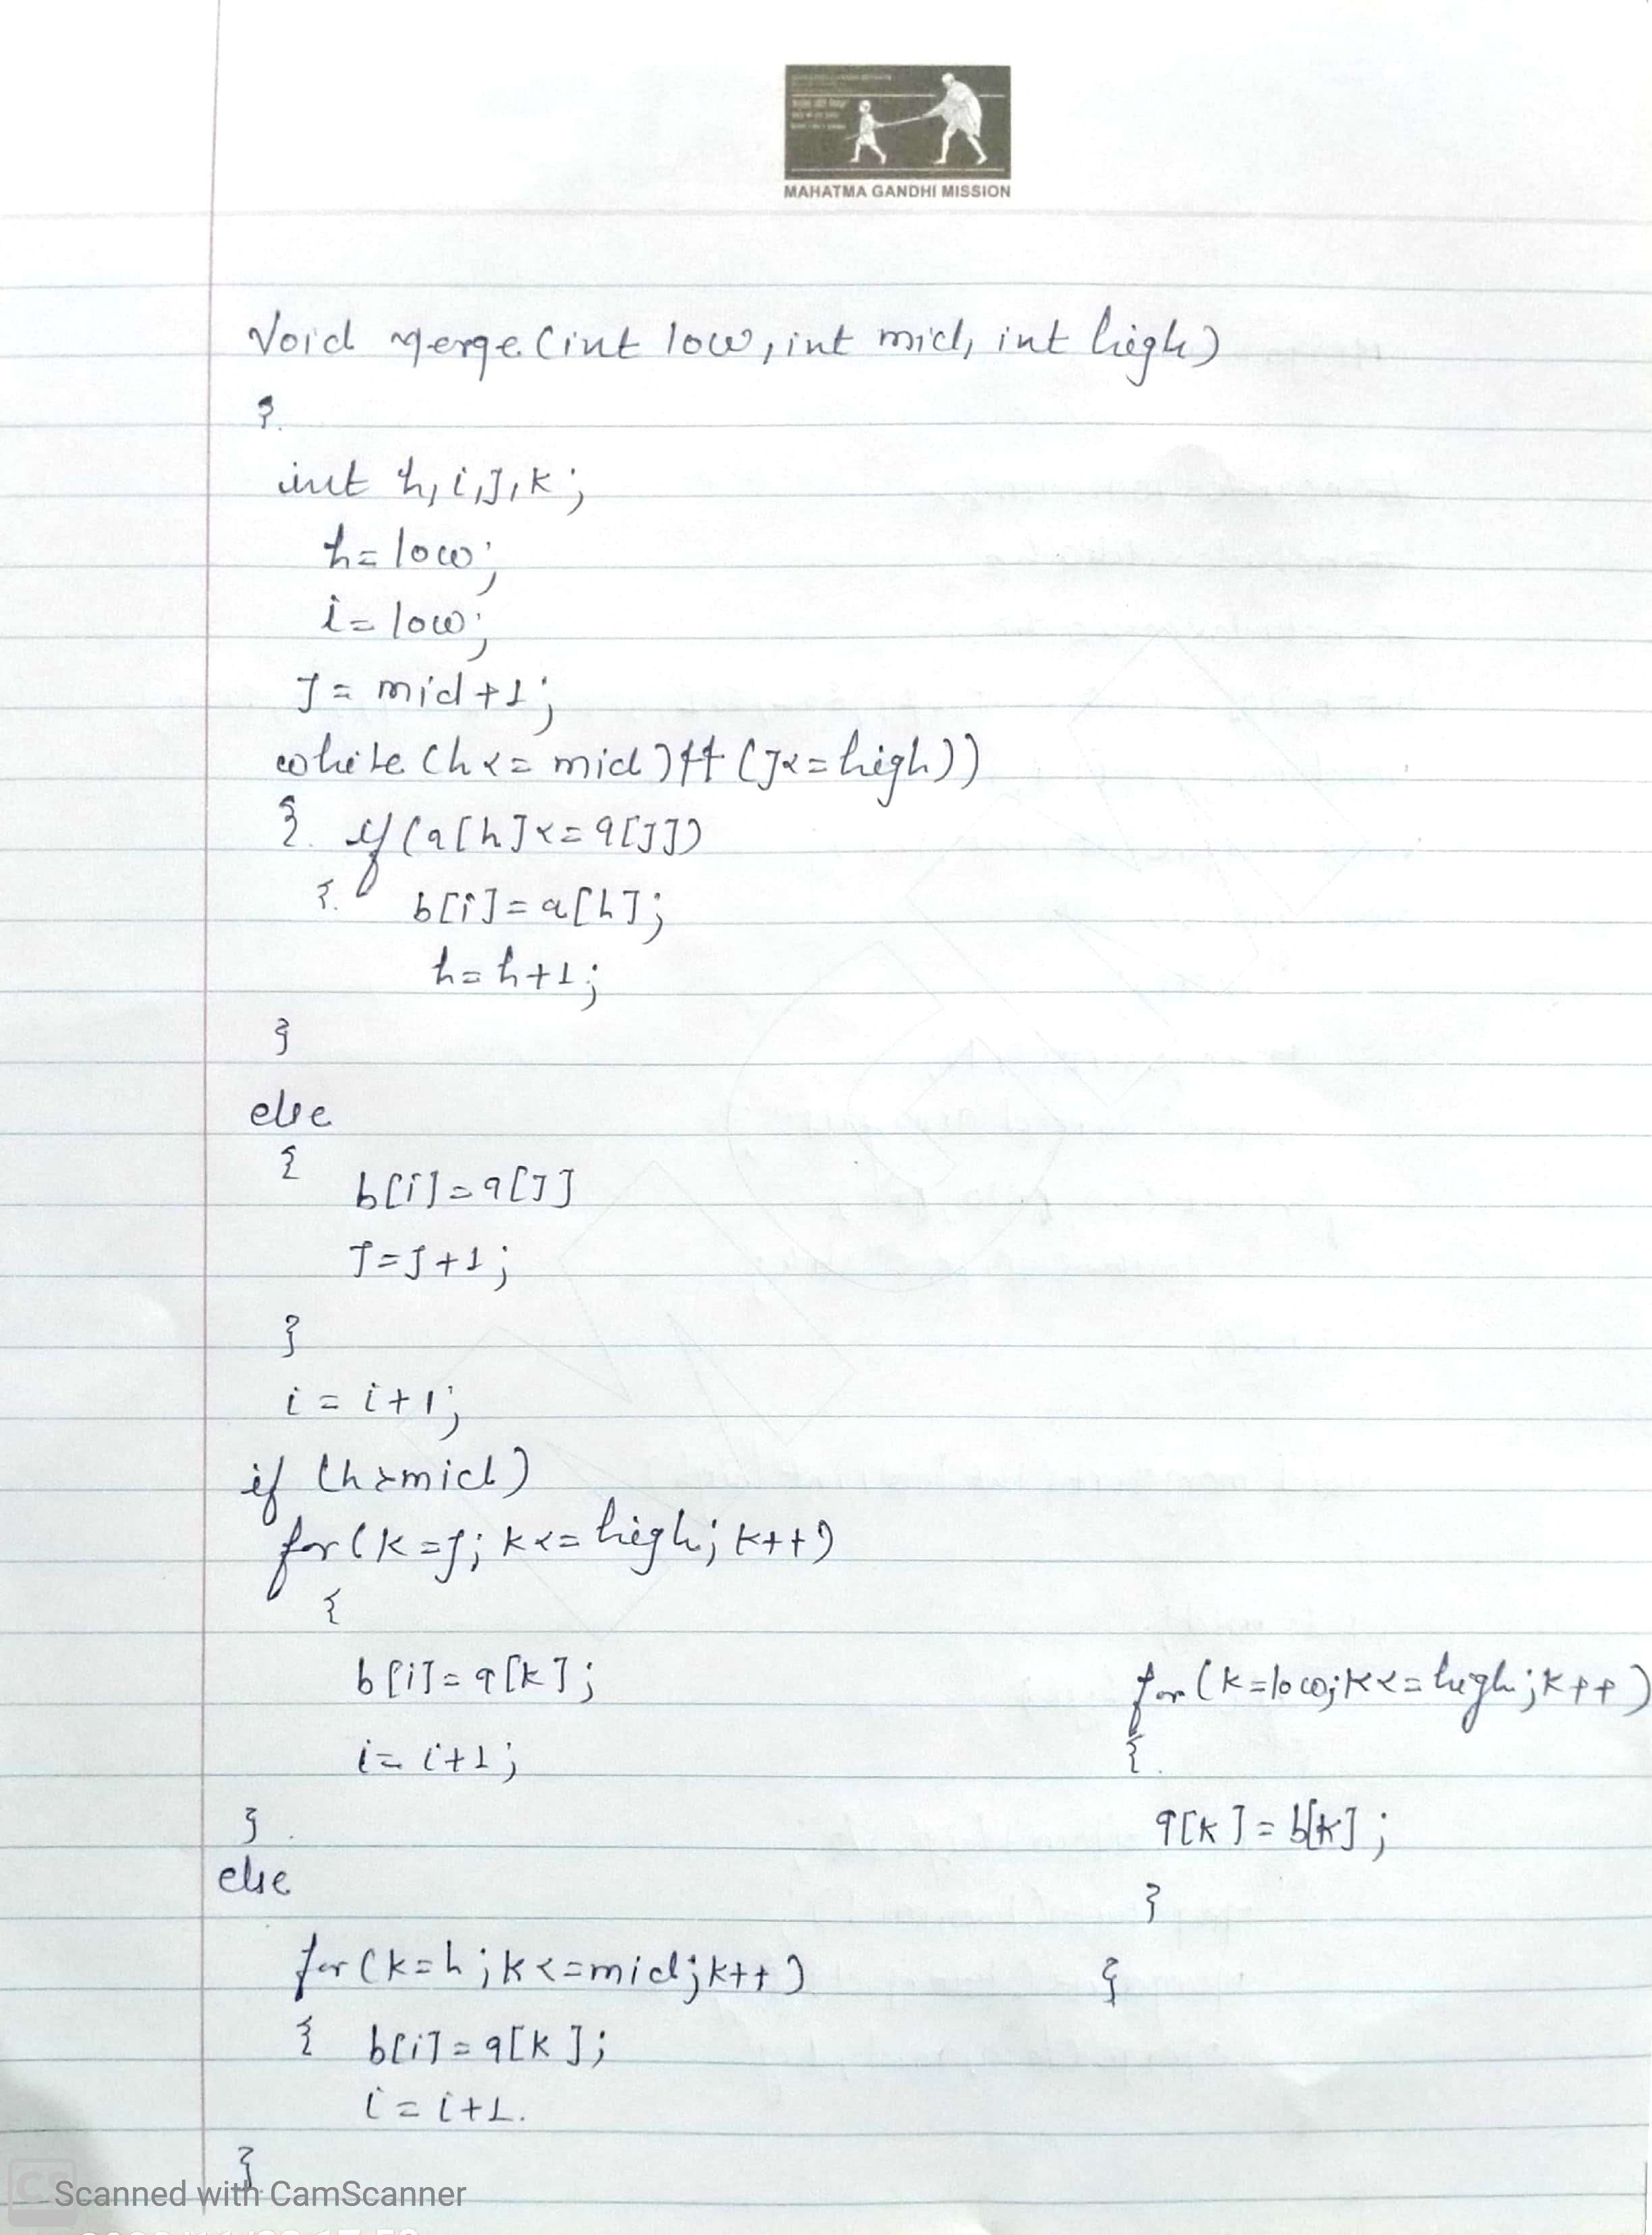 MAHATMA GANDHI MISSION
Void Merge (int low, int mid, int high)
{
int h, i, J, k;
h = low;
i = low;
J = mid+1;
while (h <= mid) && (J <= high))
{ if (a[h] <= a[J])
{ b[i] = a[h];
h = h+1;
}
else
{
b[i] = a[J]
J = J+1;
}
i = i+1;
if (h > mid)
for (k = J; k <= high; k++)
{
b[i] = a[k];
i = i+1;
}
else
for (k = h; k <= mid; k++)
{ b[i] = a[k];
i = i+1.
}
for (k = low; k <= high; k++)
{
a[k] = b[k];
}
}
CS Scanned with CamScanner